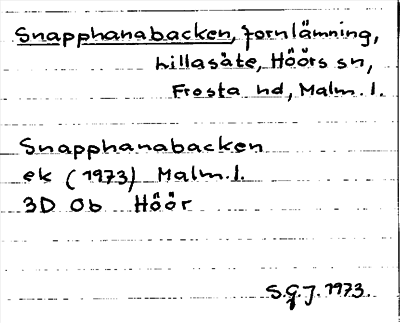 Snapphanabacken, fornlämning,
Lillasäte, Höörs sn,
Frosta hd, Malm. l.
Snapphanabacken
ek (1973) Malm. l.
3D Ob Höör
S.G.J. 1973.